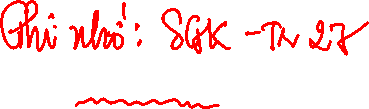 Ghi nhớ: SGK - Tr 27